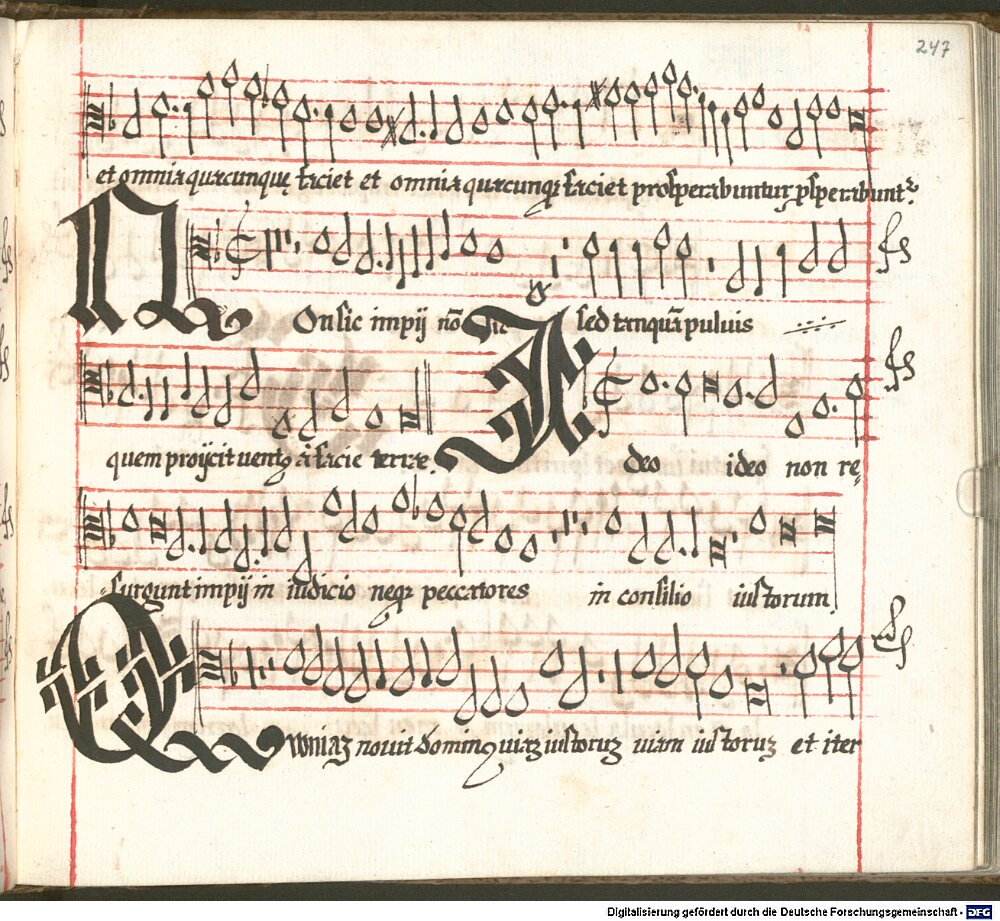 247
et omnia quæcunquę faciet et omnia quæcunqȝ faciet prosperabuntur ꝓsperabunt᷑
NOn sic impij nō sic sed tanquā puluis
quem proijcit uentꝰ a facie terræ. Ideo ideo non rę
surgunt impij in iudicio neqȝ peccatores in consilio iustorum
Quoniaȝ nouit dominꝰ uiaȝ iustoruȝ uiam iustoruȝ et iter
Digitalisierung gefördert durch die Deutsche Forschungsgemeinschaft - DFG